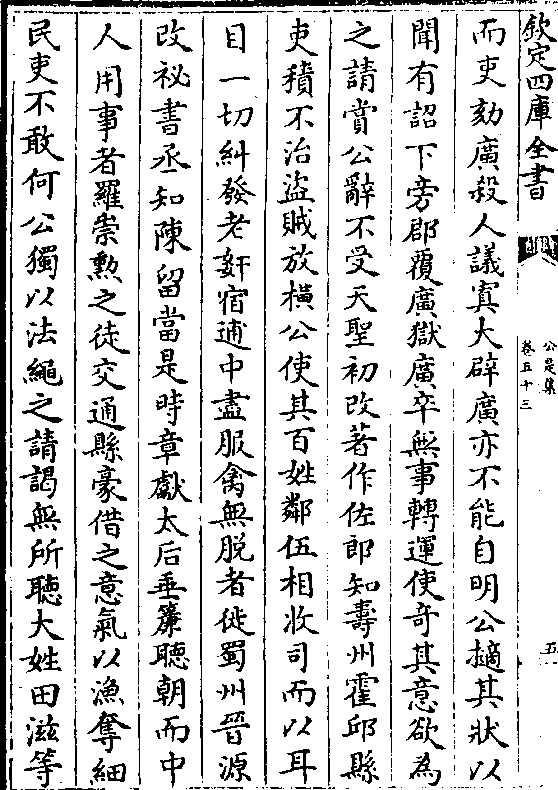 欽定四庫全書
公是集
卷五十三
五
而吏劾廣殺人議寘大辟廣亦不能自明公擿其狀以
聞有詔下旁郡覆廣獄廣卒無事轉運使奇其意欲為
之請賞公辭不受天聖初改著作佐郎知壽州霍邱縣
吏積不治盜賊放橫公使其百姓鄰伍相收司而以耳
目一切糾發老姧宿逋中盡服禽無脱者徙蜀州晉源
改祕書丞知陳留當是時章獻太后垂簾聽朝而中
人用事者羅崇勲之徒交通縣豪借之意氣以漁奪細
民吏不敢何公獨以法繩之請謁無所聽大姓田滋等